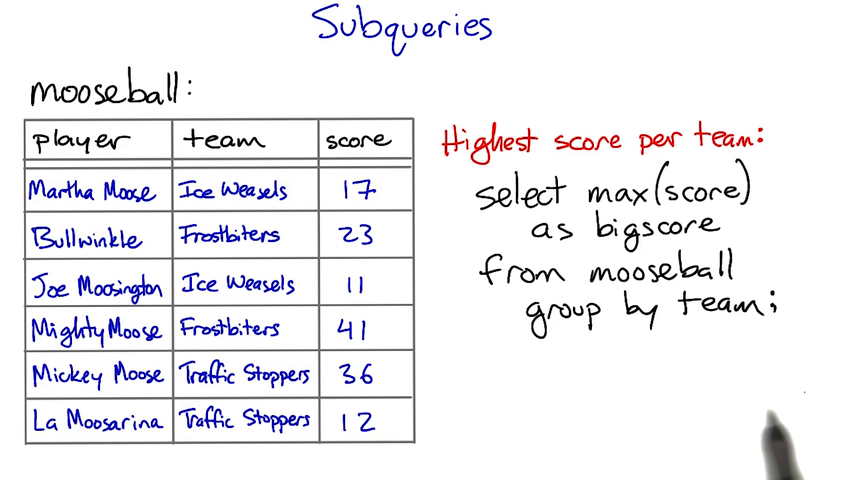 Subqueries
mooseball:
player team score
Martha Moose Ice Weasels 17
Bullwinkle Frostbiters 23
Joe Moosington Ice Weasels 11
Mighty Moose Frostbiters 41
Mickey Moose Traffic Stoppers 36
La Moosarina Traffic Stoppers 12
Highest score per team:
select max(score)
as bigscore
from mooseball
group by team;